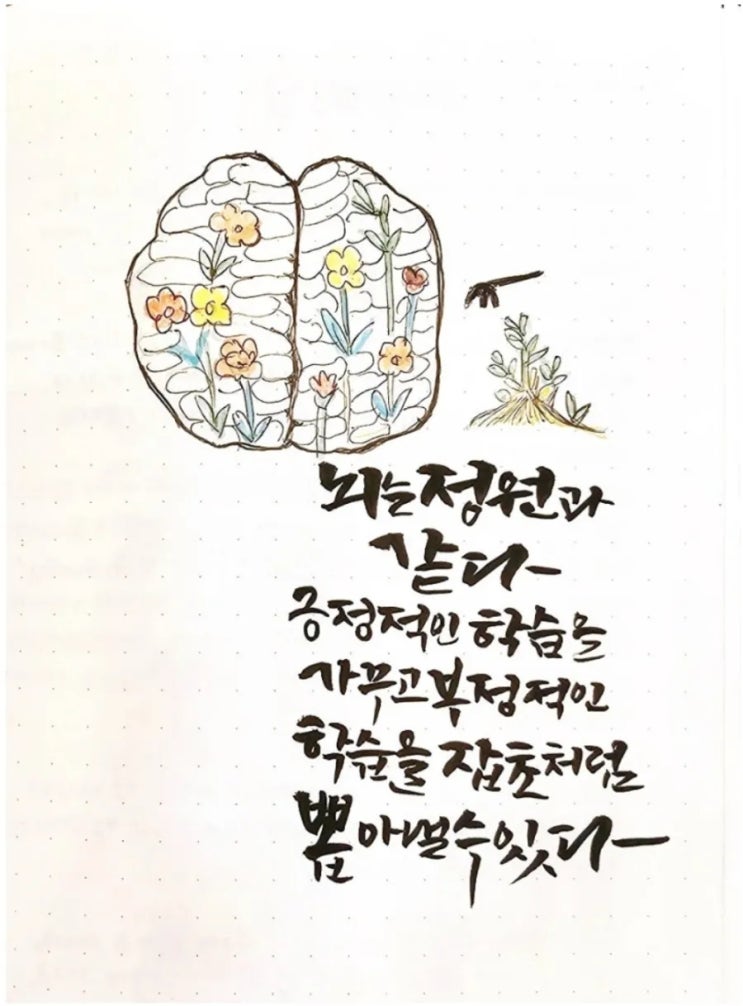 뇌는 정원과
같다
긍정적인 학습을
가꾸고 부정적인
학습을 잡초처럼
뽑아낼 수 있다